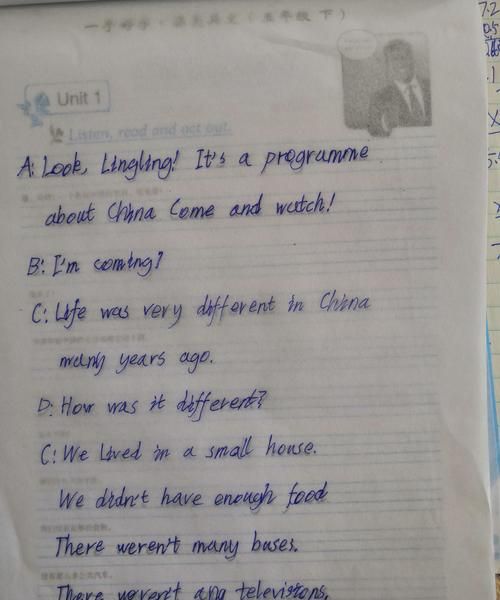 一手好字·漂亮英文（五年级 下）
Unit 1
Listen, read and act out.
A: Look, Lingling! It's a programme
about China Come and watch!
B: I'm coming?
C: Life was very different in China
many years ago.
D: How was it different?
C: We Lived in a small house.
We didn't have enough food
There weren't many buses.
There weren't any televisions.